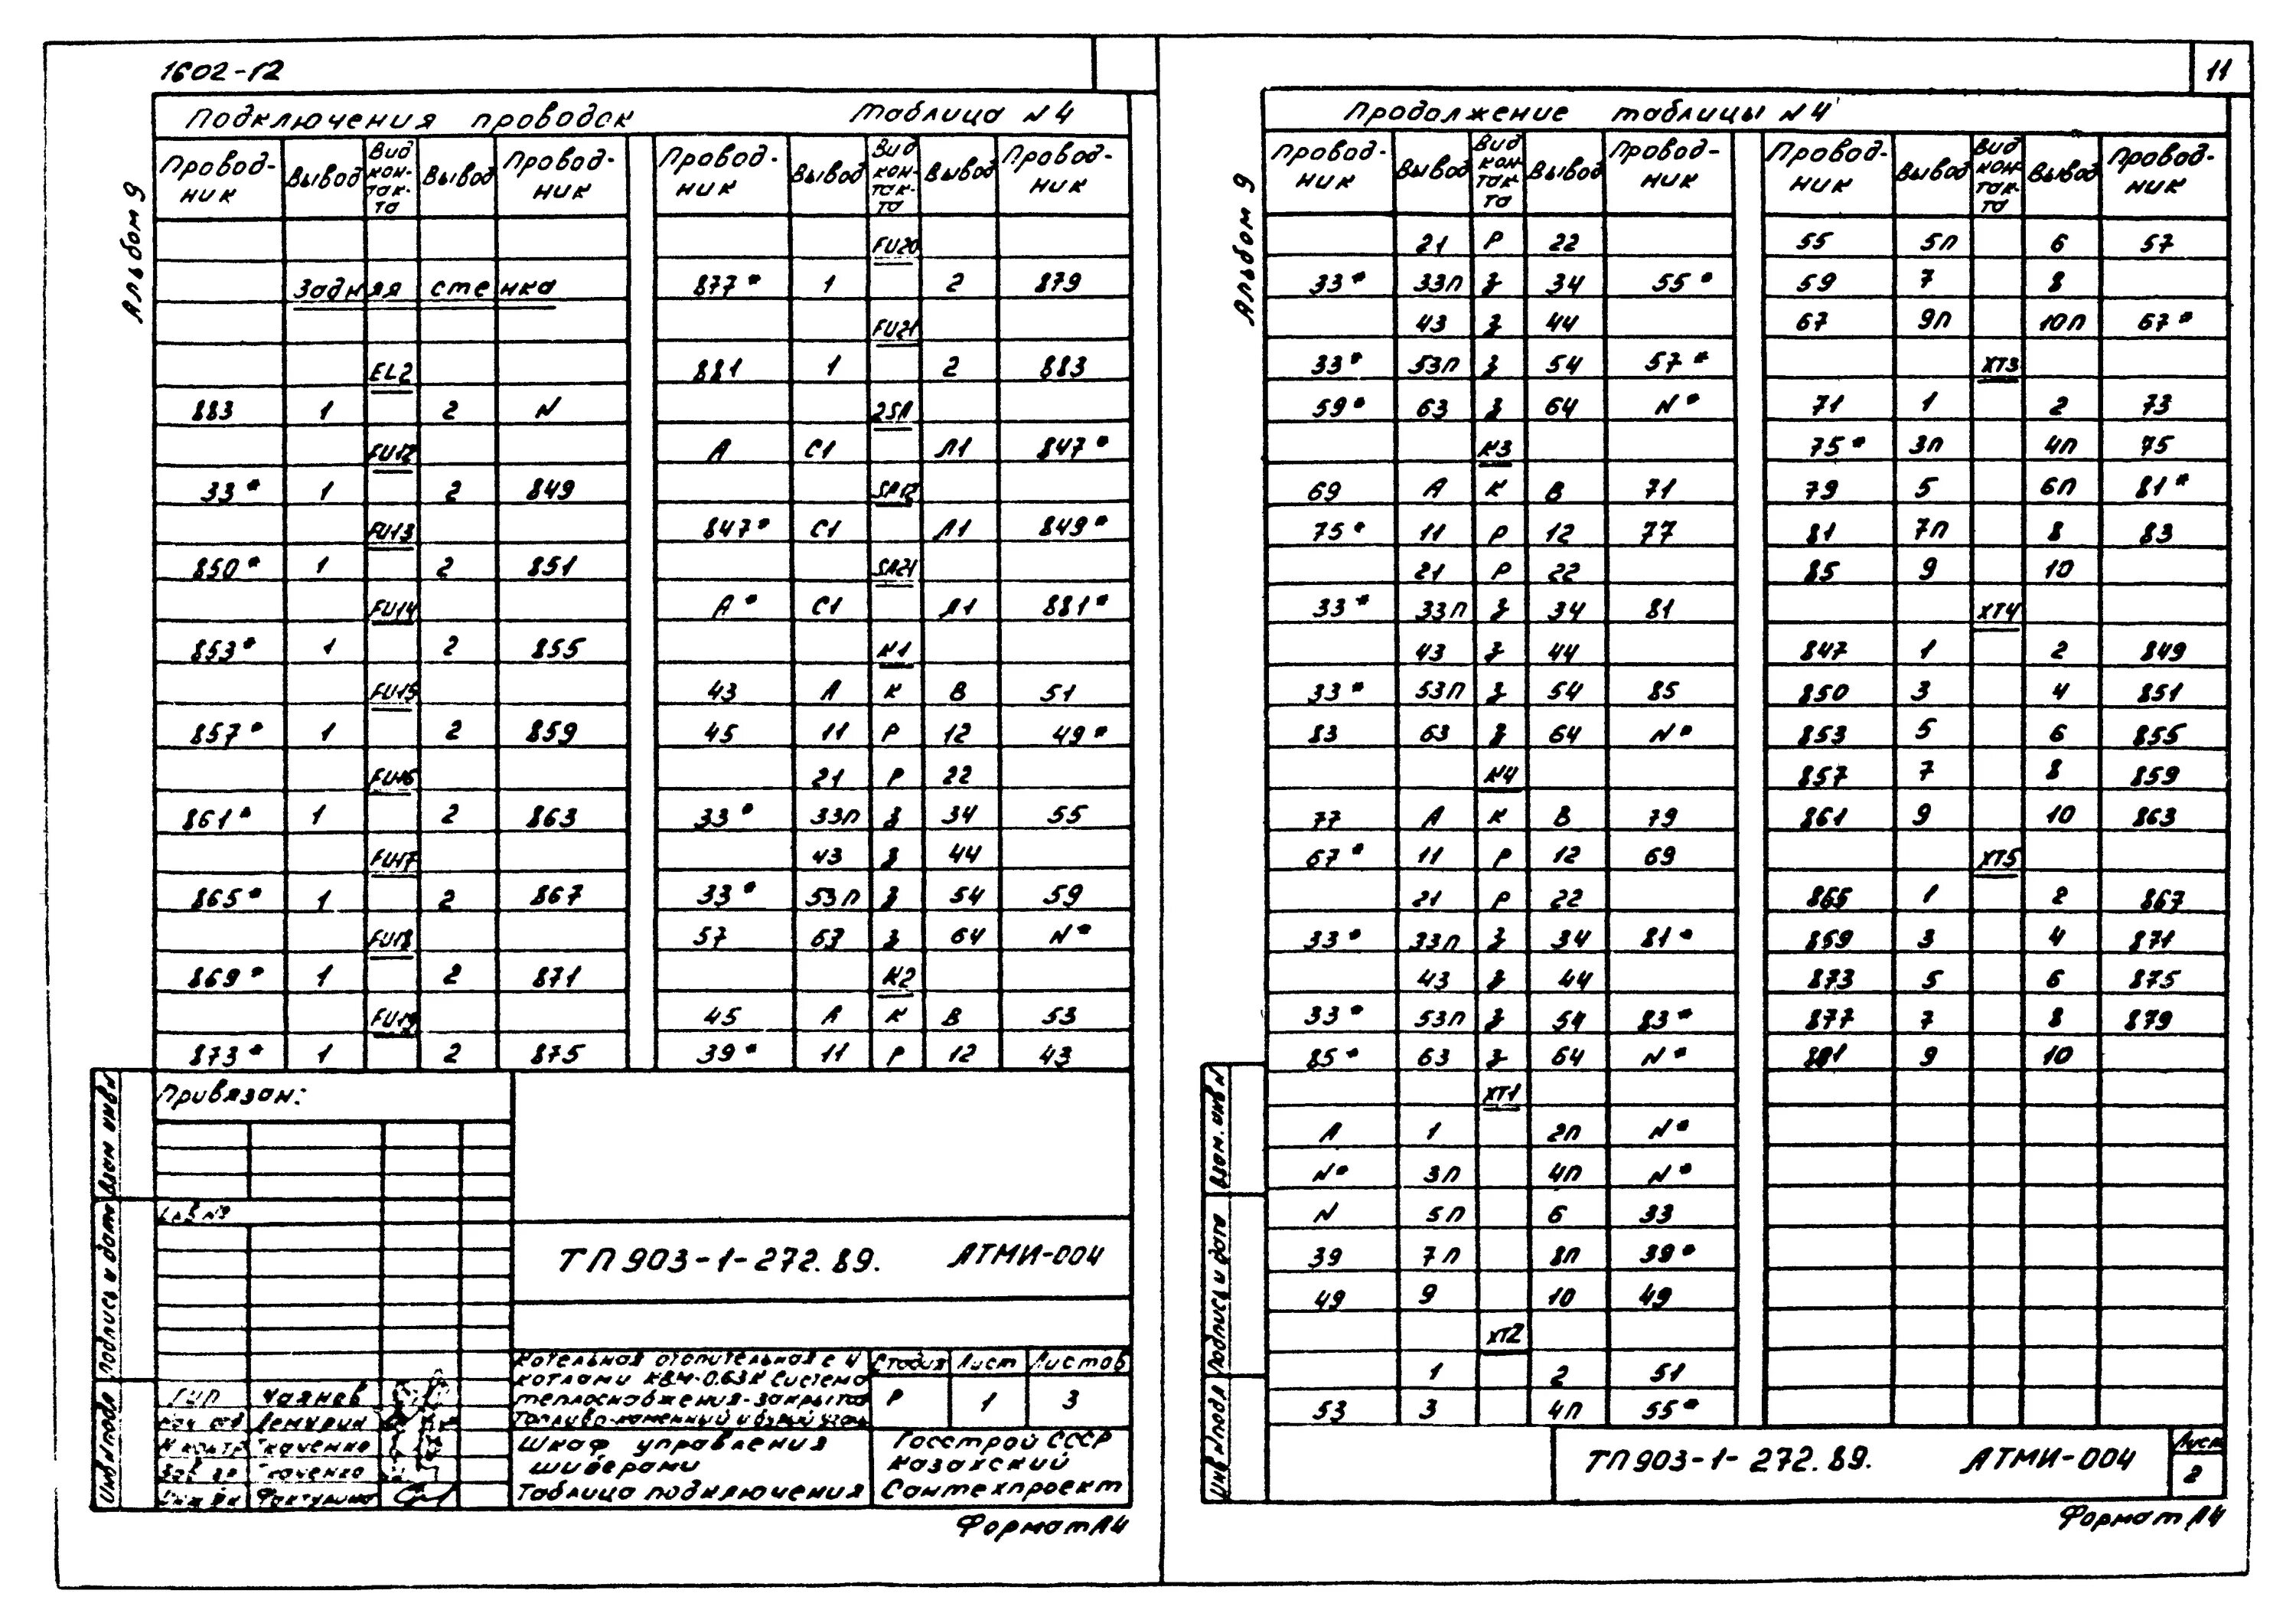 1602-12
Альбом 9
Подключения проводок Таблица №4
Провод-ник Вывод Вид кон-так-та Вывод Провод-ник
Задняя стенка
EL2
883 1 2 N
FU12
33* 1 2 849
FU13
850* 1 2 851
FU14
853* 1 2 855
FU15
857* 1 2 859
FU16
861* 1 2 863
FU17
865* 1 2 867
FU18
869* 1 2 871
FU19
873* 1 2 875
Провод-ник Вывод Вид кон-так-та Вывод Провод-ник
FU20
877* 1 2 879
FU21
881 1 2 883
2SA
А С1 Л1 847*
SA12
847* С1 Л1 849*
SA21
А* С1 Л1 881*
К1
43 А К В 51
45 11 Р 12 49*
21 Р 22
33* 33П З 34 55
43 З 44
33* 53П З 54 59
57 63 З 64 N*
К2
45 А К В 53
39* 11 Р 12 43
Привязан:
Инв №
ТП 903-1-272.89. АТМИ-004
Котельная отопительная с 4
котлами КВМ-0.63К Система
теплоснабжения-закрытая
Топливо-каменный и бурый уголь
Стадия Лист Листов
Р 1 3
ГИП Чаянов
Нач. отд
Н контр Ткаченко
Ткаченко
Шкаф управления
шиберами
Таблица подключения
Госстрой СССР
Казахский
Сантехпроект
Взам инв N
Подпись и дата
Инв N подл
Формат А4
11
Альбом 9
Продолжение таблицы №4
Провод-ник Вывод Вид кон-так-та Вывод Провод-ник
21 Р 22
33* 33П З 34 55*
43 З 44
33* 53П З 54 57*
59* 63 З 64 N*
К3
69 А К В 71
75* 11 Р 12 77
21 Р 22
33* 33П З 34 81
43 З 44
33* 53П З 54 85
83 63 З 64 N*
К4
77 А К В 79
67* 11 Р 12 69
21 Р 22
33* 33П З 34 81*
43 З 44
33* 53П З 54 83*
85* 63 З 64 N*
XT1
А 1 2П N*
N* 3П 4П N*
N 5П 6 33
39 7П 8П 39*
49 9 10 49
XT2
1 2 51
53 3 4П 55*
Провод-ник Вывод Вид кон-так-та Вывод Провод-ник
55 5П 6 57
59 7 8
67 9П 10П 67*
XT3
71 1 2 73
75* 3П 4П 75
79 5 6П 81*
81 7П 8 83
85 9 10
XT4
847 1 2 849
850 3 4 851
853 5 6 855
857 7 8 859
861 9 10 863
XT5
865 1 2 867
869 3 4 871
873 5 6 875
877 7 8 879
881 9 10
Взам. инв N
Подпись и дата
Инв N подл
ТП 903-1-272.89. АТМИ-004
Лист
2
Формат А4